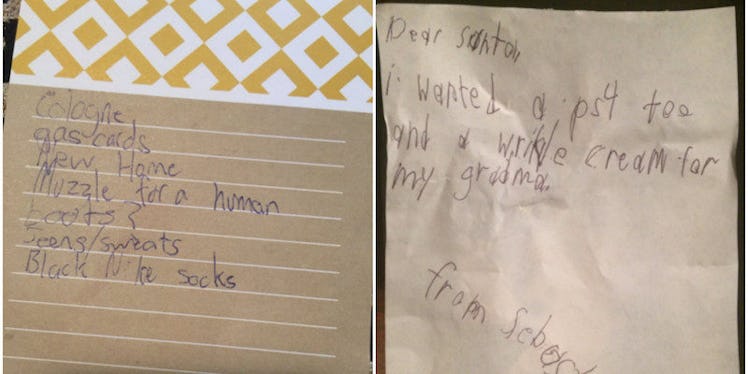 Cologne
gas cards
New Home
Muzzle for a human
boots?
Jeens/sweats
Black Nike socks
Dear Santa,
i wanted a ps4 too
and a wrinkle cream for
my grama.
from